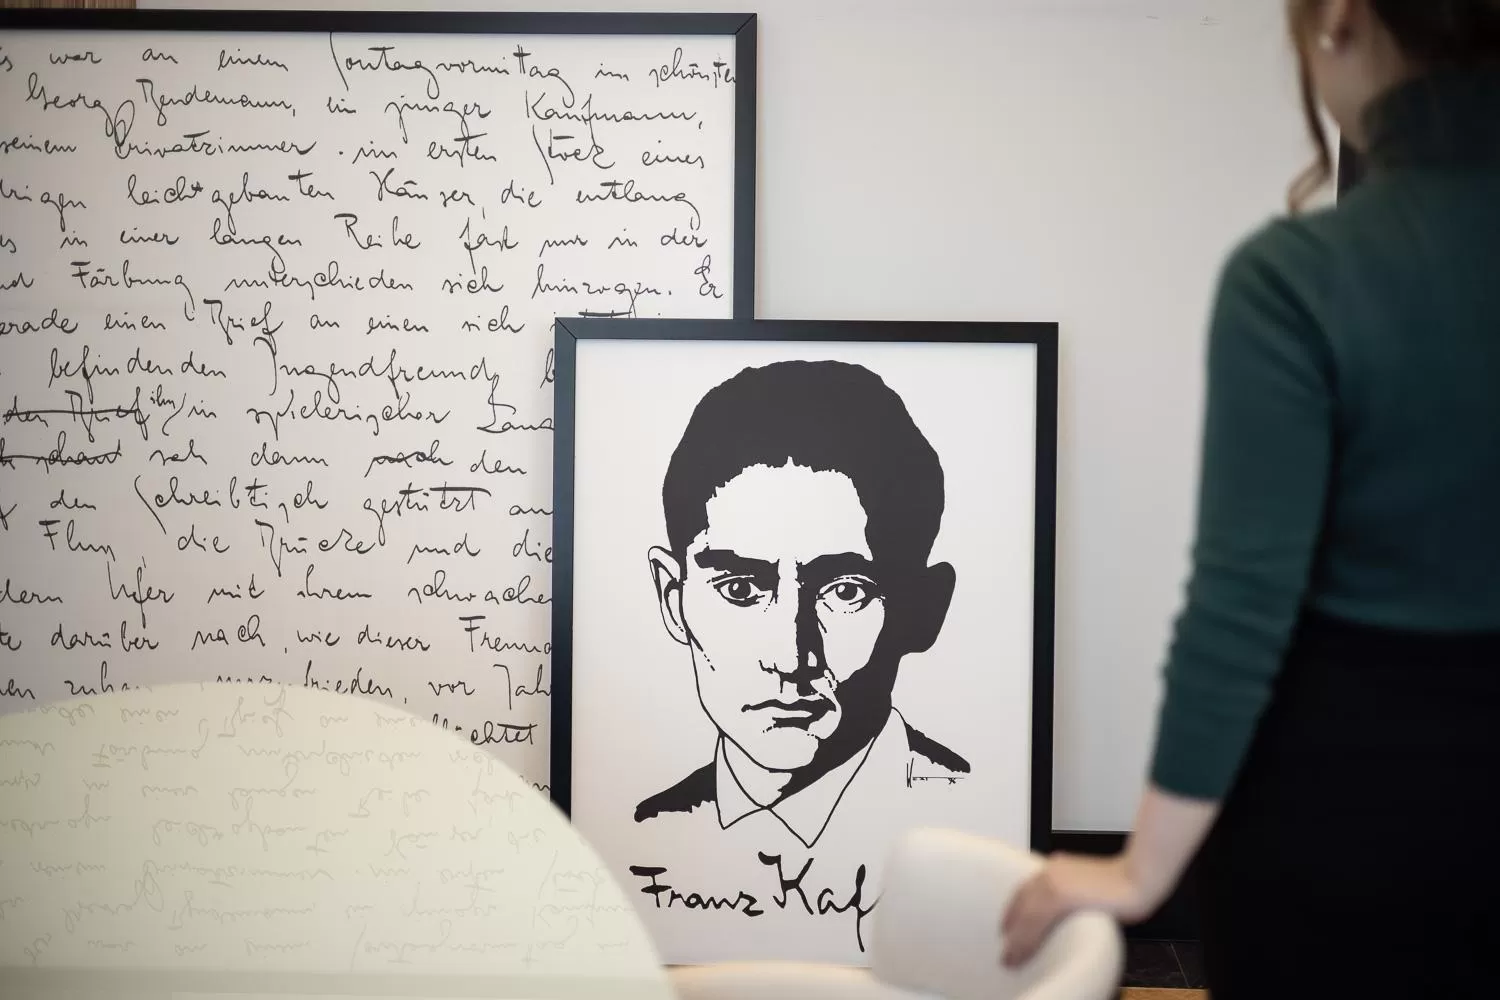 s war an einem Sontagvormittag im schönsten
Georg Bendemann, ein junger Kaufmann,
seinem Privatzimmer im ersten Stock eines
drigen leichtgebauten Häuser, die entlang
es in einer langen Reihe fast nur in der
nd Färbung unterschieden sich hinzogen. Er
erade einen Brief an einen sich
befindenden Jugendfreund
den Brief ihn in spielerischer Lang
schaut sah dann nach den
f den Schreibtisch gestützt au
Fluß, die Brücke und die
dern Ufer mit ihrem schwachen
te darüber nach, wie dieser Freund
en zuhau unzufrieden, vor Jah
üchtet
Franz Kaf